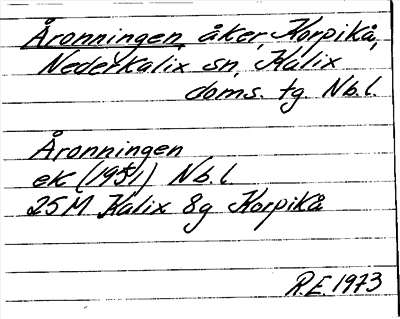 Åronningen, åker, Korpikå,
Nederkalix sn, Kalix
doms. tg. Nb.l.
Åronningen
ek (1951) Nb.l.
25M Kalix 8g Korpikå
R.E. 1973